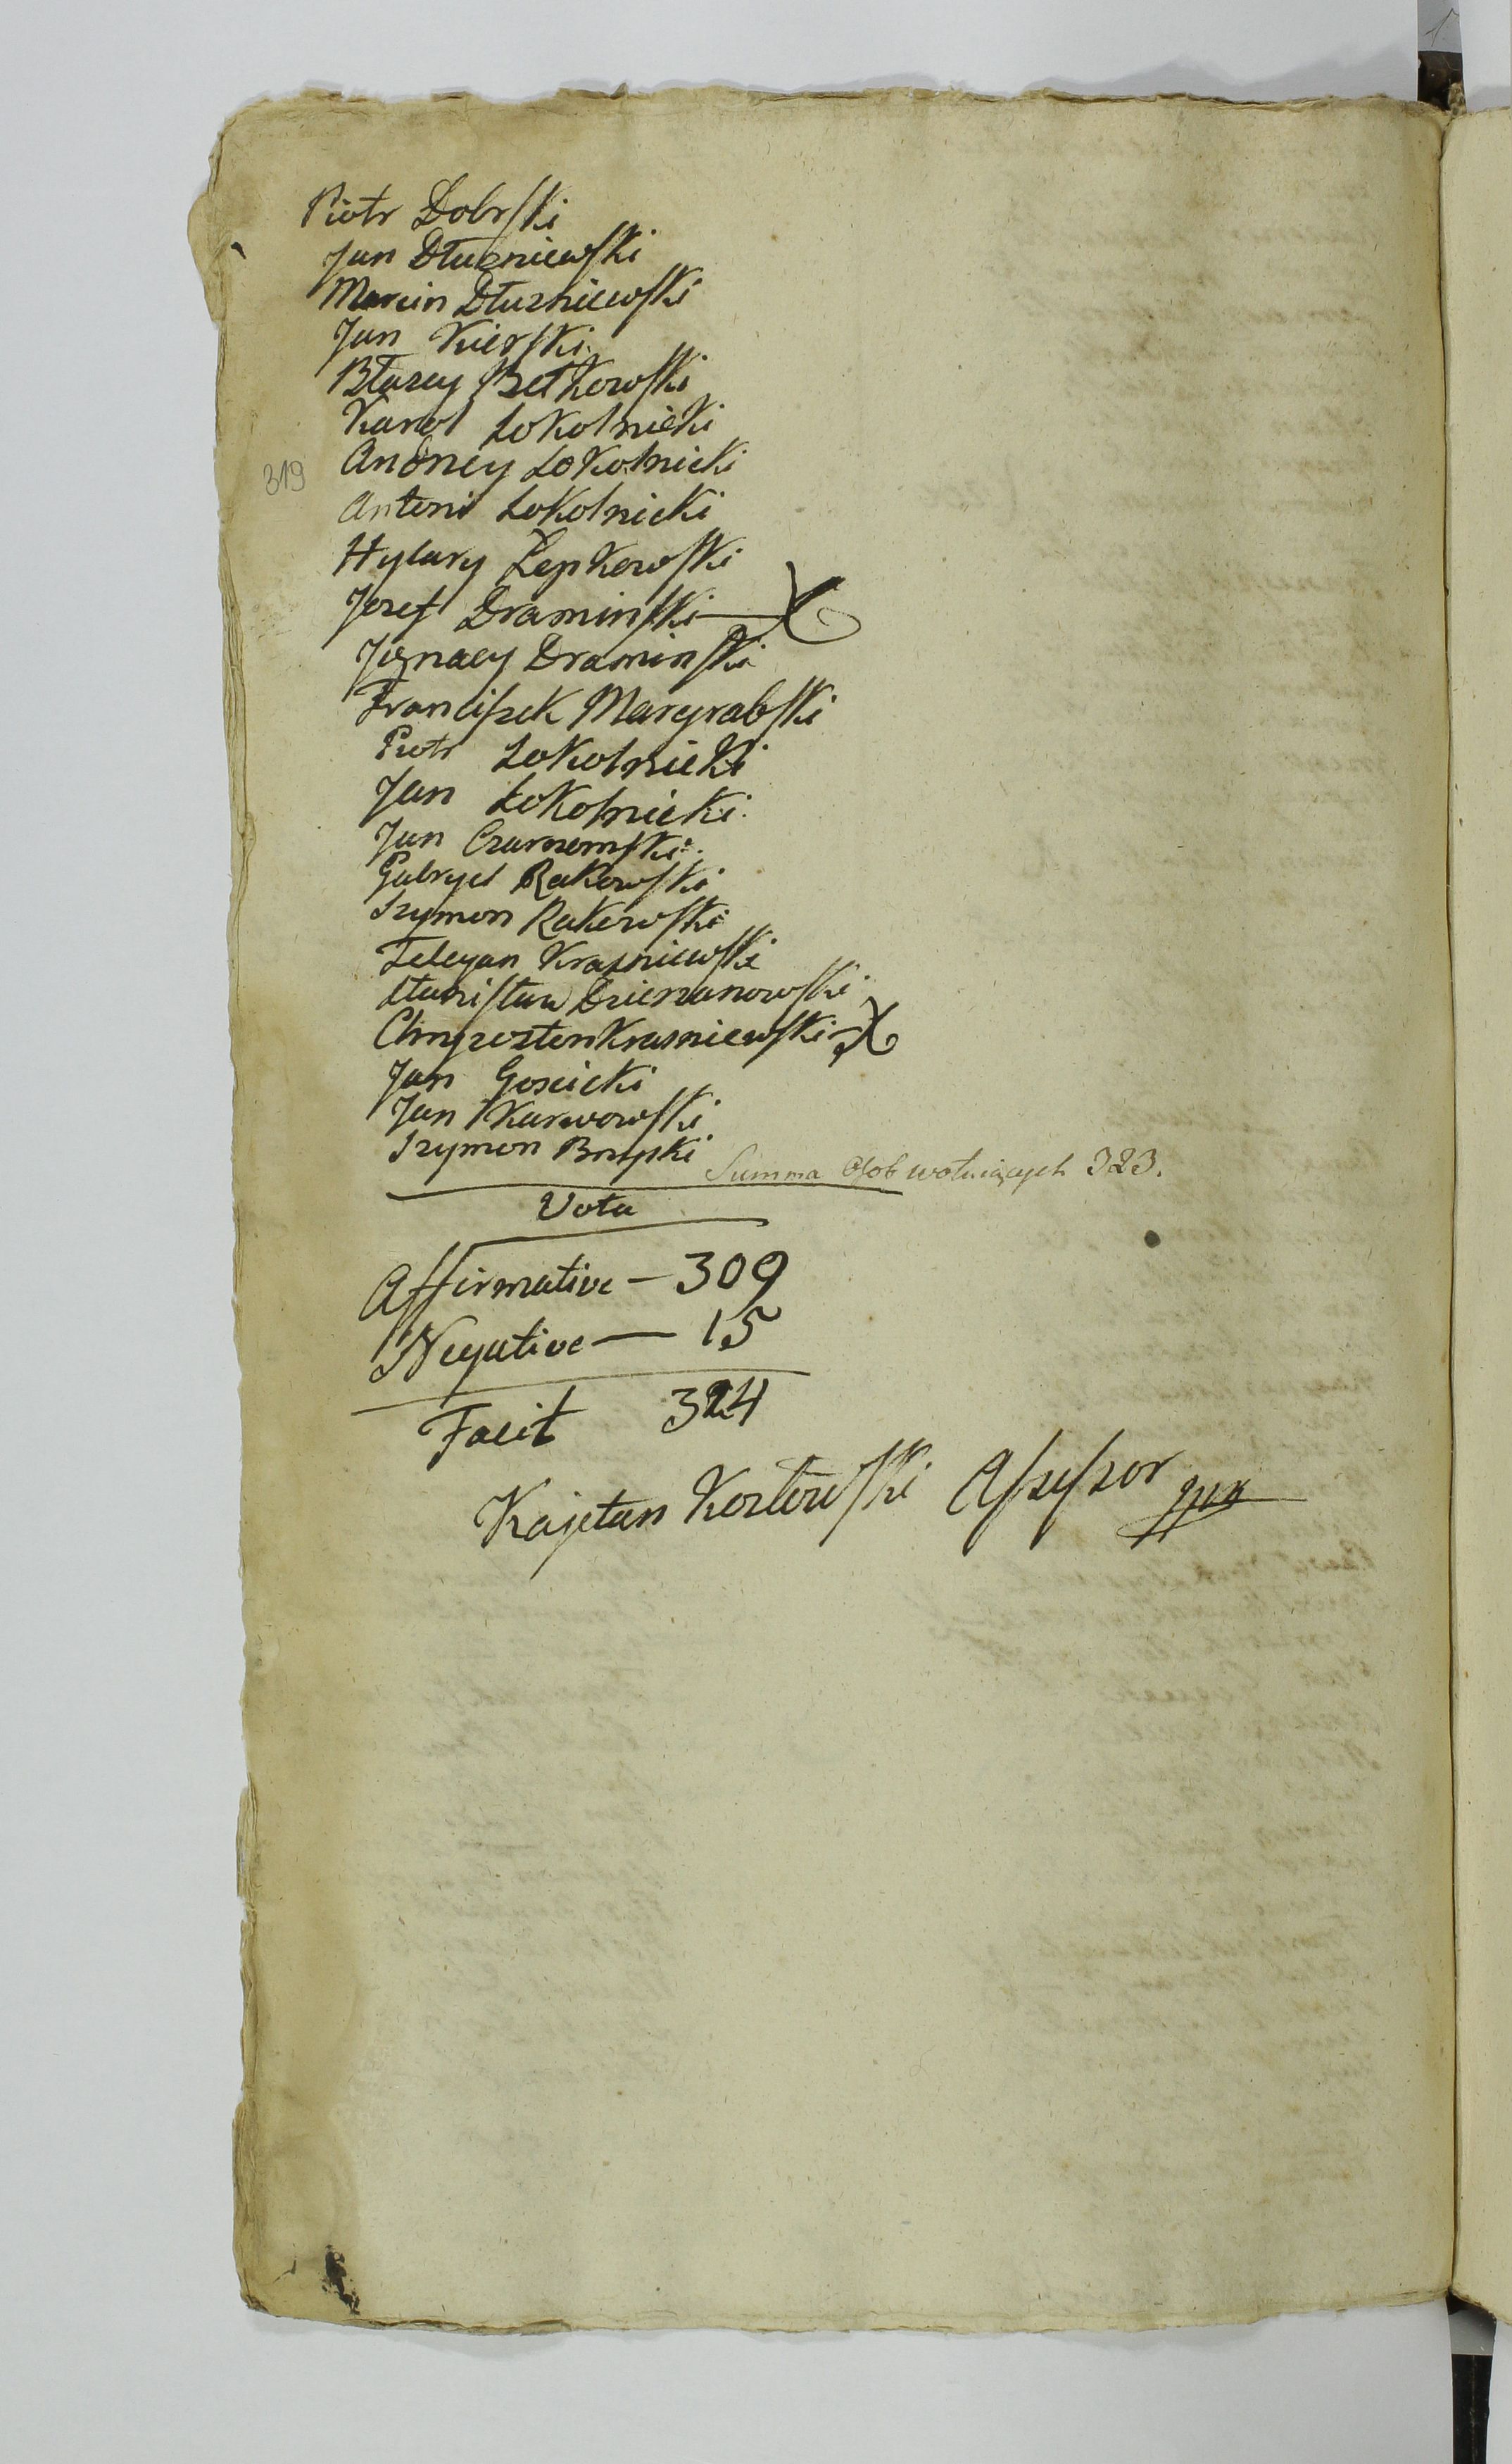 Piotr Dobrski
Jan Dłużniewski
Marcin Dłużniewski
Jan Kierski
Błazey Betkowski
Karol Sokolnicki
319
Andrzey Sokolnicki
Antoni Sokolnicki
Hylary Zepkowski
Jozef Draminski
Jgnacy Draminski
Franciszek Margrabski
Piotr Sokolnicki
Jan Sokolnicki
Jan
Gabryel Rakowski
Szymon Rakowski
Felicyan Krasniewski
Stanisław Dziewanowski
Chryzosten Krasniewski
Jan Goscicki
Jan Karwowski
Szymon
Summa osob wotuiących 323.
Vota
Affirmative — 309
Negative — 15
Facit 324
Kajetan Kozłowski Assessor